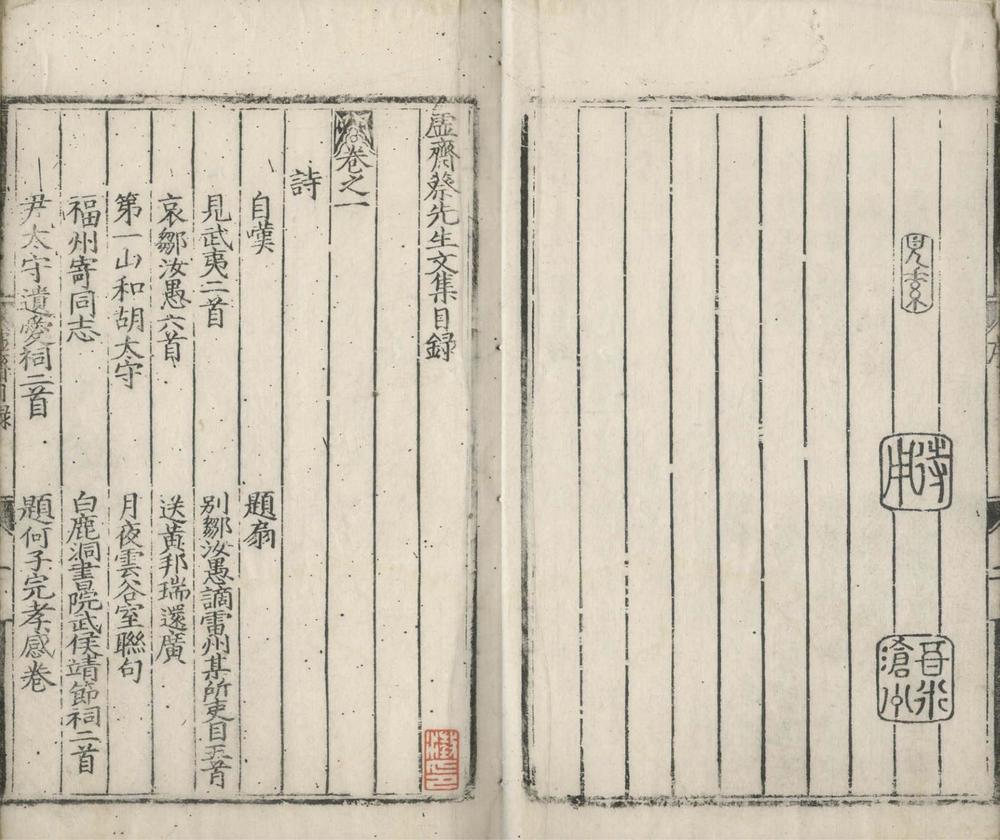 見素
待用
虛齋蔡先生文集目録
卷之一
詩
自嘆　題扇
見武夷二首　別鄒汝愚謫雷州某所吏目五首
哀鄒汝愚六首　送黃邦瑞還廣
第一山和胡太守　月夜雲谷室聯句
福州寄同志　白鹿洞書院武侯靖節祠二首
尹太守遺愛祠二首　題何子完孝感卷